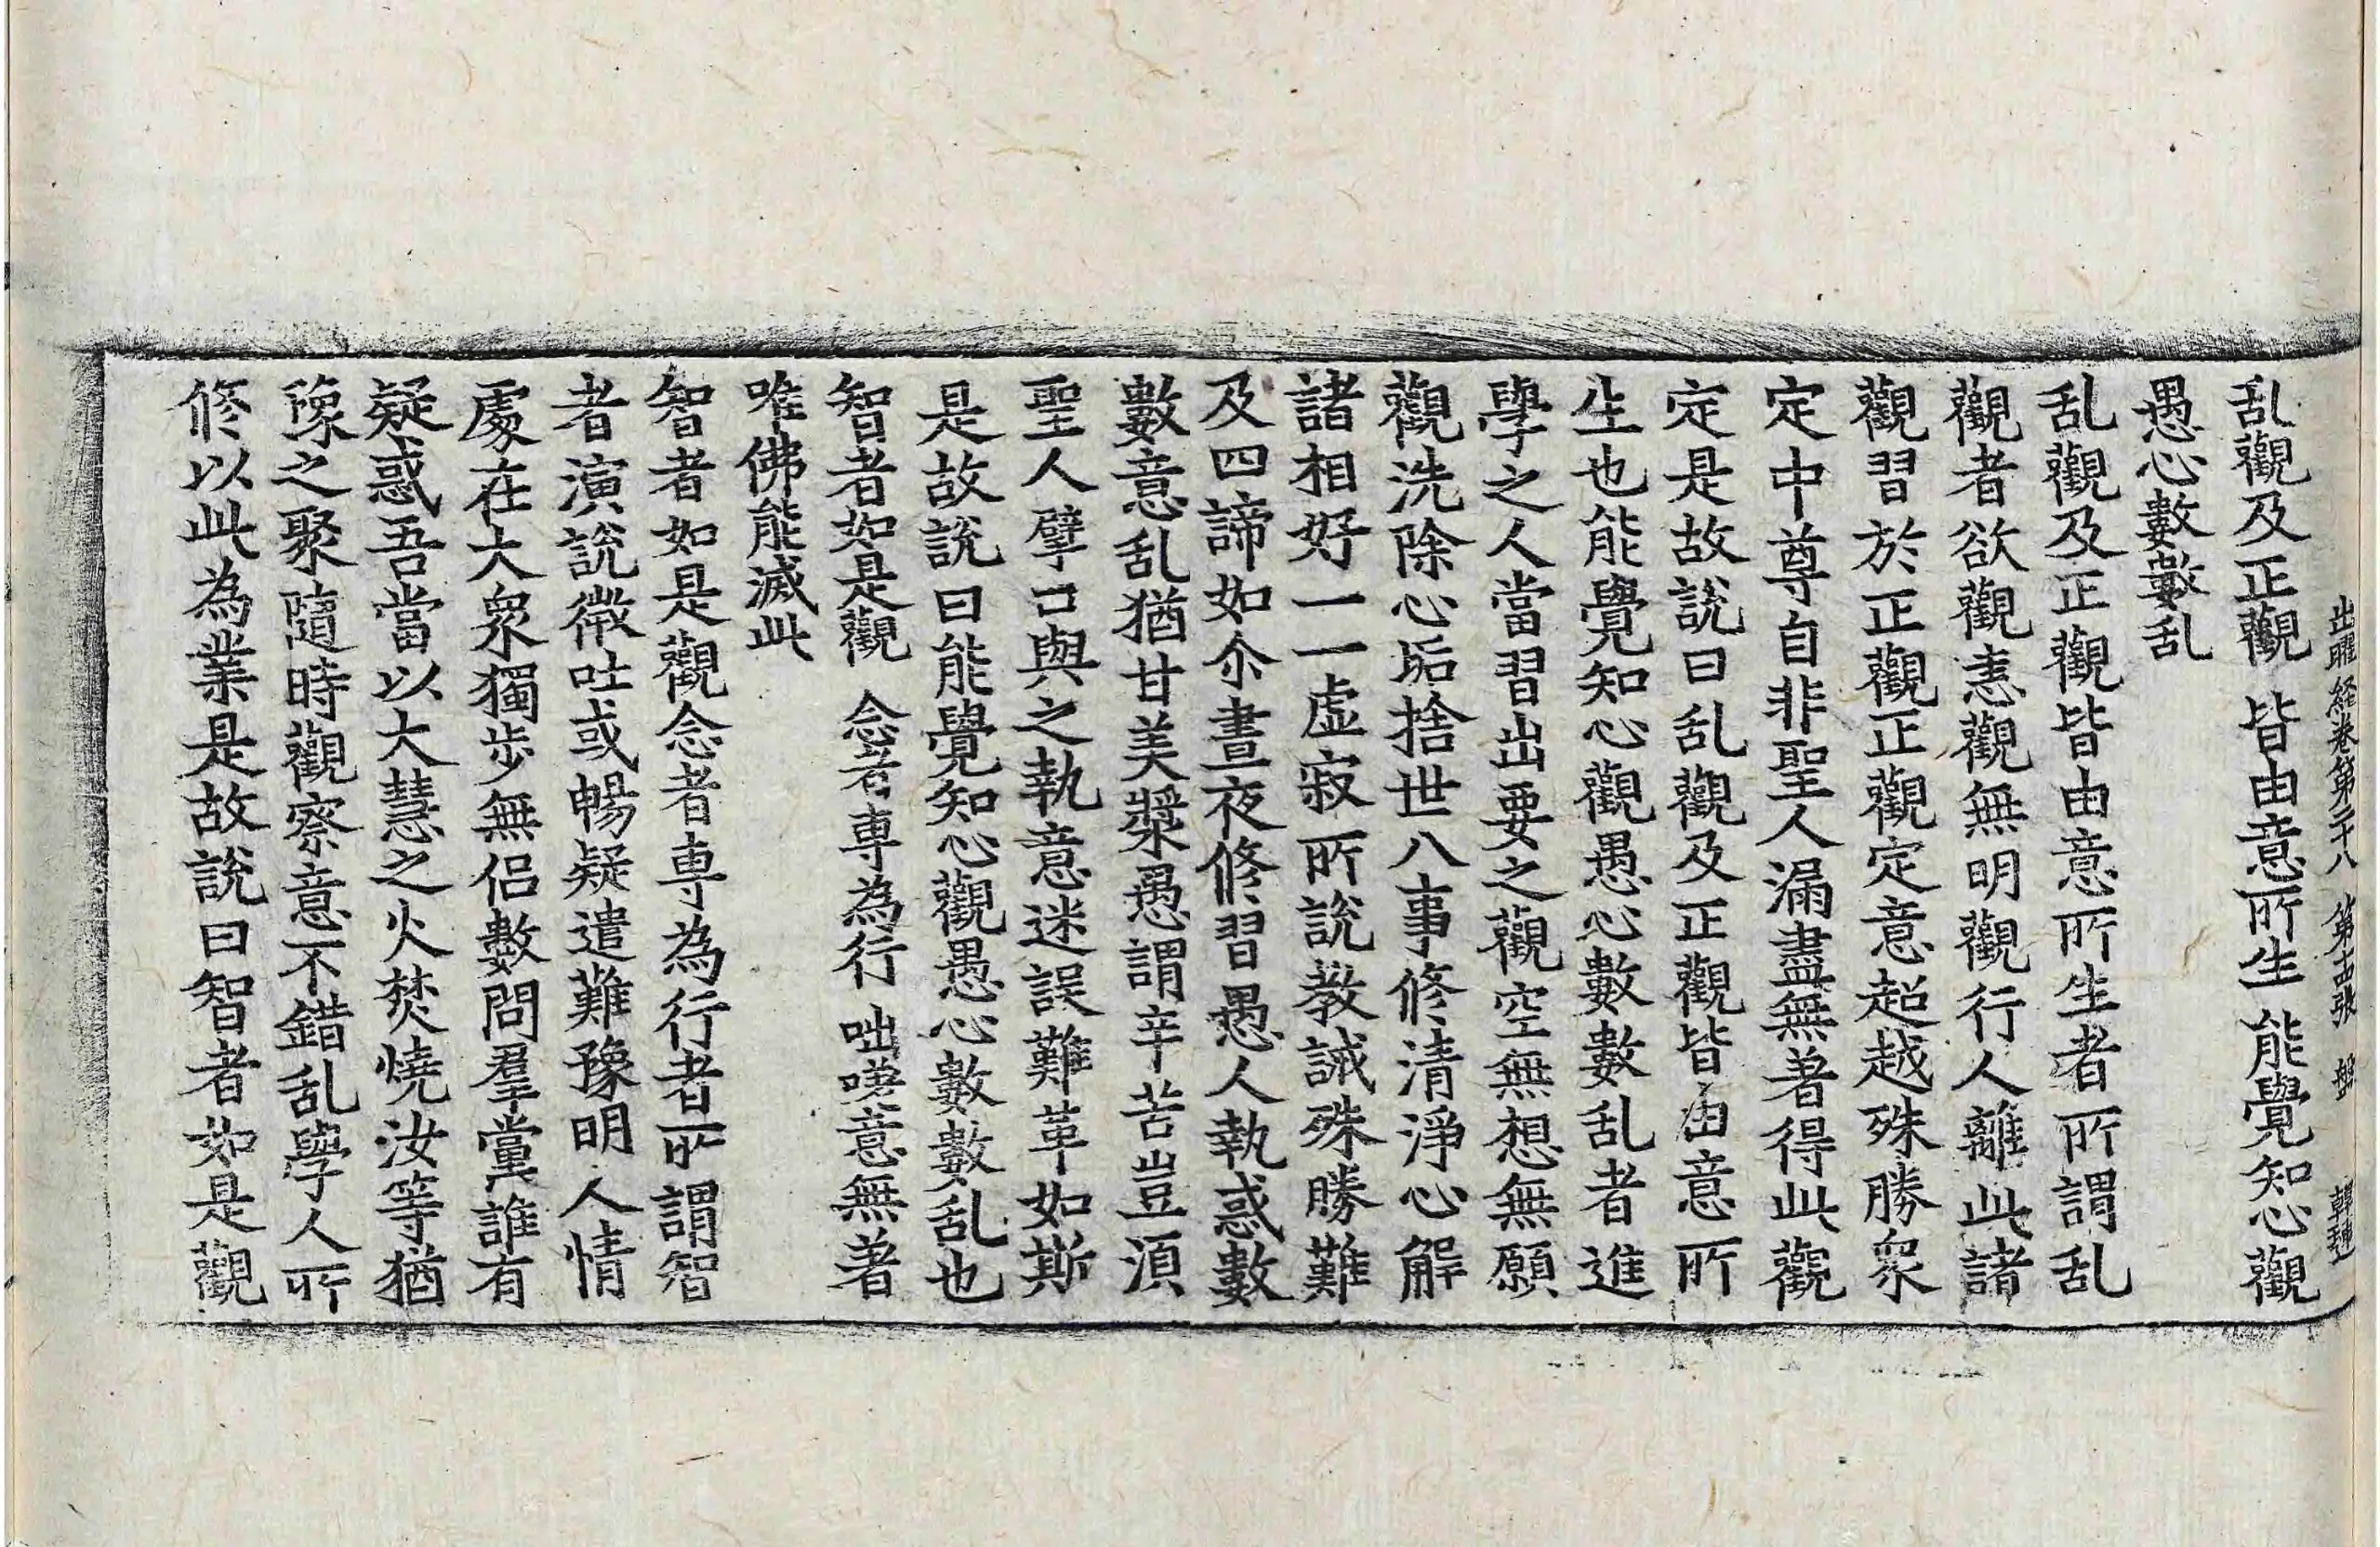 出曜経卷第二十八 第十四張 盤
乱觀及正觀 皆由意所生 能覺知心觀
愚心數數乱
乱觀及正觀皆由意所生者所謂乱
觀者欲觀恚觀無明觀行人離此諸
觀習於正觀正觀定意超越殊勝衆
定中尊自非聖人漏盡無著得此觀
定是故說曰乱觀及正觀皆由意所
生也能覺知心觀愚心數數乱者進
學之人當習出要之觀空無想無願
觀洗除心垢捨世八事修清淨心解
諸相好一一虛寂所說教誡殊勝難
及四諦如尒晝夜修習愚人執惑數
數意乱猶甘美漿愚謂辛苦豈湏
聖人擘口與之執意迷誤難革如斯
是故說曰能覺知心觀愚心數數乱也
智者如是觀 念者專為行 咄嗟意無著
唯佛能滅此
智者如是觀念者專為行者所謂智
者演說微吐或暢疑遣難豫明人情
處在大衆獨步無侶數問羣黨誰有
疑惑吾當以大慧之火焚燒汝等猶
豫之聚隨時觀察意不錯乱學人所
修以此為業是故說曰智者如是觀